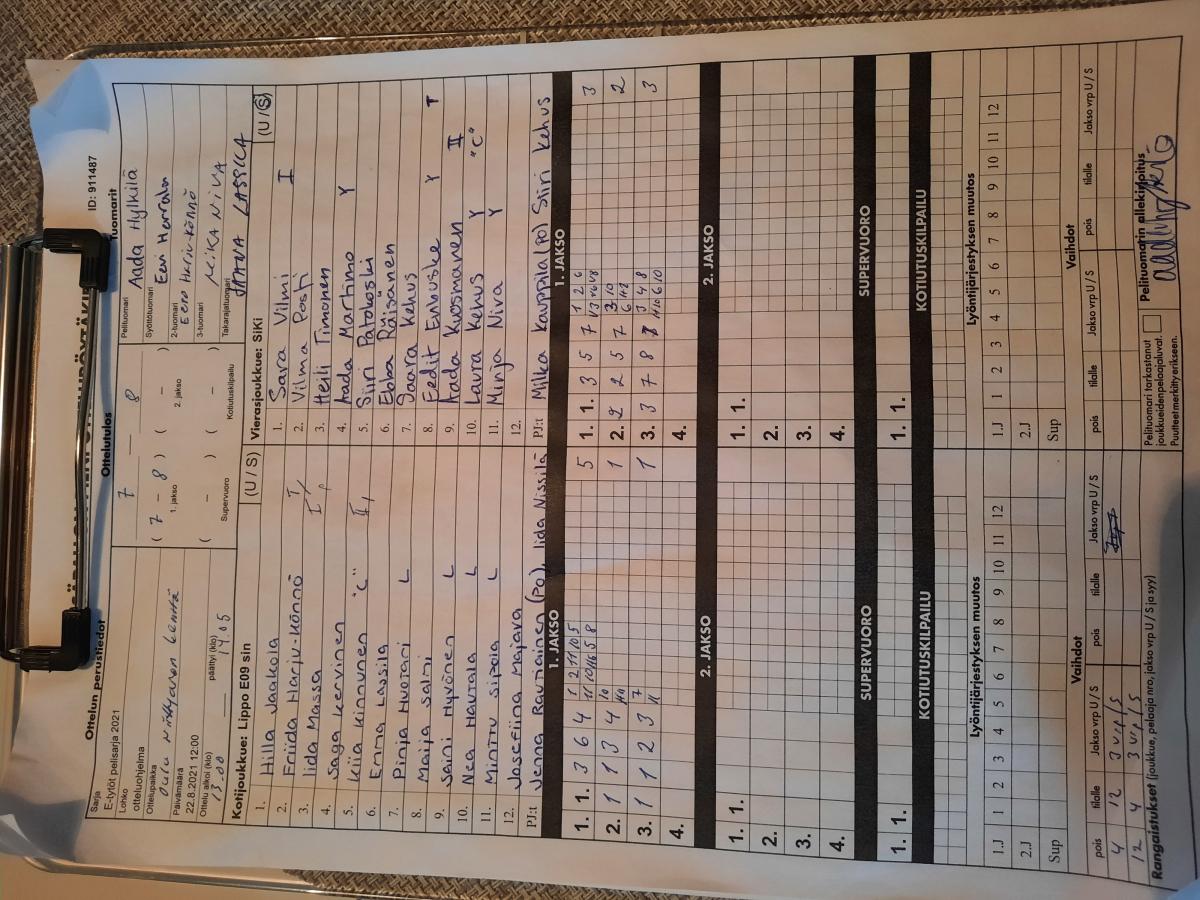 ID: 911487
Ottelun perustiedot
Ottelutulos
Tuomarit
Sarja
E-tytöt pelisarja 2021
Lohko
otteluohjelma
Ottelupaikka
Oulu
Päivämäärä
22.8.2021 12:00
Ottelu alkoi (klo)
13.00
päättyi (klo)
14.05
7 — 8
( 7 - 8 ) ( - )
1. jakso 2. jakso
( - ) ( - )
Supervuoro Kotiutuskilpailu
Pelituomari
Aada Hylkilä
Syöttötuomari
Eevi Harrala
2-tuomari
Eero Harju-Könnö
3-tuomari
MIKA NIVA
Takarajatuomari
JAANA LASSILA
Kotijoukkue: Lippo E09 sin (U / S)
1. Hilla Jaakola
2. Eriida Harju-Könnö
3. Iida Massa
4. Saga Kervinen
5. Kiia Kinnunen "C"
6. Emma Lassila
7. Pinja Huotari L
8. Maija Salmi
9. Saini Hyvönen L
10. Nea Hautala L
11. Minttu Sipola L
12. Josefiina Majava
PJ:t Jenna Rautiainen (PO), Iida Nissilä
Vierasjoukkue: SiKi (U / S)
1. Sara Vilmi I
2. Vilma Posti
3. Heili Timonen
4. Aada Martimo Y
5. Siiri Patokoski
6. Ebba Räisänen
7. Saara Kehus
8. Eedit Enbuske Y T
9. Aada Kuosmanen II
10. Laura Kehus Y "C"
11. Minja Niva Y
12.
PJ:t Milka Kauppila (PO) Siiri Kehus
1. JAKSO
1. 1. 3 6 4 5
2. 1 1 3 4 1
3. 1 1 2 3 1
4.
1. JAKSO
1. 1. 3 5 7 3
2. 2 2 5 7 2
3. 3 7 8 3
4.
2. JAKSO
1. 1.
2.
3.
4.
2. JAKSO
1. 1.
2.
3.
4.
SUPERVUORO
1. 1.
SUPERVUORO
1. 1.
KOTIUTUSKILPAILU
KOTIUTUSKILPAILU
Lyöntijärjestyksen muutos
1.J 1 2 3 4 5 6 7 8 9 10 11 12
2.J
Sup
Lyöntijärjestyksen muutos
1.J 1 2 3 4 5 6 7 8 9 10 11 12
2.J
Sup
Vaihdot
pois tilalle Jakso vrp U / S pois tilalle Jakso vrp U / S
4 12 3 vrp/S
12 4 3 vrp/S
Vaihdot
pois tilalle Jakso vrp U / S pois tilalle Jakso vrp U / S
Rangaistukset (joukkue, pelaaja nro, jakso vrp U / S ja syy)
Pelituomari tarkastanut
joukkueiden pelaajaluvat.
Puutteet merkitty erikseen.
Pelituomarin allekirjoitus